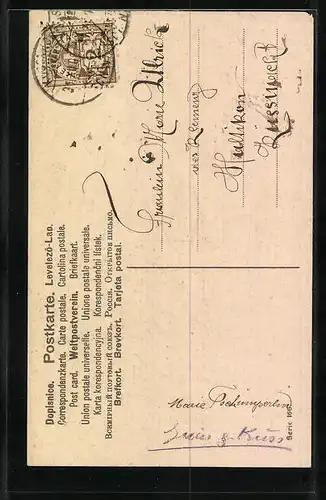 Dopisnice. Postkarte. Levelező-Lap.
Correspondenzkarte. Carte postale. Cartolina postale.
Post card. Weltpostverein. Briefkaart.
Union postale universelle. Unione postale universale.
Karta korespondencyjna. Korespondenční lístek.
Всемирный почтовый союзъ. Россия. Открытое письмо.
Brefkort. Brevkort. Tarjeta postal.
Fräulein Marie Ulrich
Waltikon
Küssnacht
Marie
Gruss u. Kuss
Serie 166